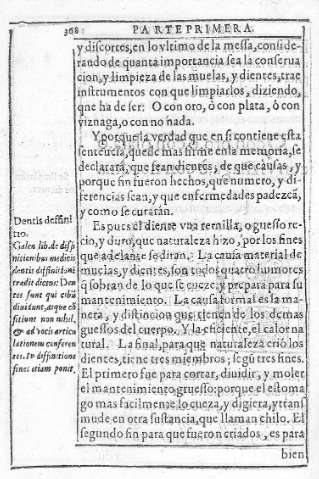 368
PARTE PRIMERA.
y discortes, en lo vltimo de la messa, conside-
rando de quanta importancia sea la conserua
cion, y limpieza de las muelas, y dientes, trae
instrumentos con que limpiarlos, diziendo,
que ha de ser: O con oro, ò con plata, ò con
viznaga, o con no nada.
Y porque la verdad que en si contiene esta
sentẽcia, quede mas firme en la memoria, se
declararà, que sean dientes, de que causas, y
porque fin fueron hechos, que numero, y di-
ferencias sean, y que enfermedades padezcã,
y como se curarán.
Es pues el diente vna ternilla, o guesso re-
cio, y duro, que naturaleza hizo, por los fines
que adelante se diran. La causa material de
muelas, y dientes, son todos quatro humores
q̃ sobran de lo que se cueze, y prepara para su
mantenimiento. La causa formal es la ma-
nera, y distincion que tienen de los demas
guessos del cuerpo. Y la eficiente, el calor na
tural. La final, para que naturaleza criò los
dientes, tiene tres miembros, segũ tres fines.
El primero fue para cortar, diuidir, y moler
el mantenimiento gruesso: porque el estoma
go mas facilmente lo cueza, y digiera, y trans
mude en otra sustancia, que llaman chilo. El
segundo fin para que fueron criados, es para
bien
Dentis deffini
tio.
Galen lib. de diff
nitionibus medicis
dentis diffinitioni
tradit dicens: Den
tes sunt qui cibũ
diuidunt, atque cõ
ficiunt non nihil,
& ad vocis articu
lationem conferen
tes. in deffinitione
fines etiam ponit.